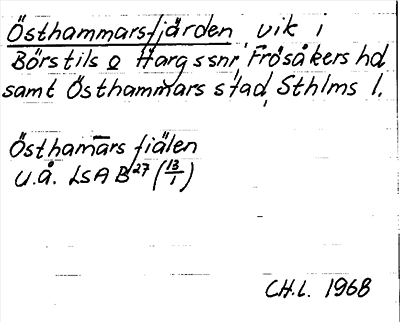 Östhammarsfjärden, vik i
Börstils o Hargs snr, Frösåkers hd
samt Östhammars stad, Sthlms l.
Östham̄ars fiälen
u.å. LSA B27 (13/1)
CH.L. 1968